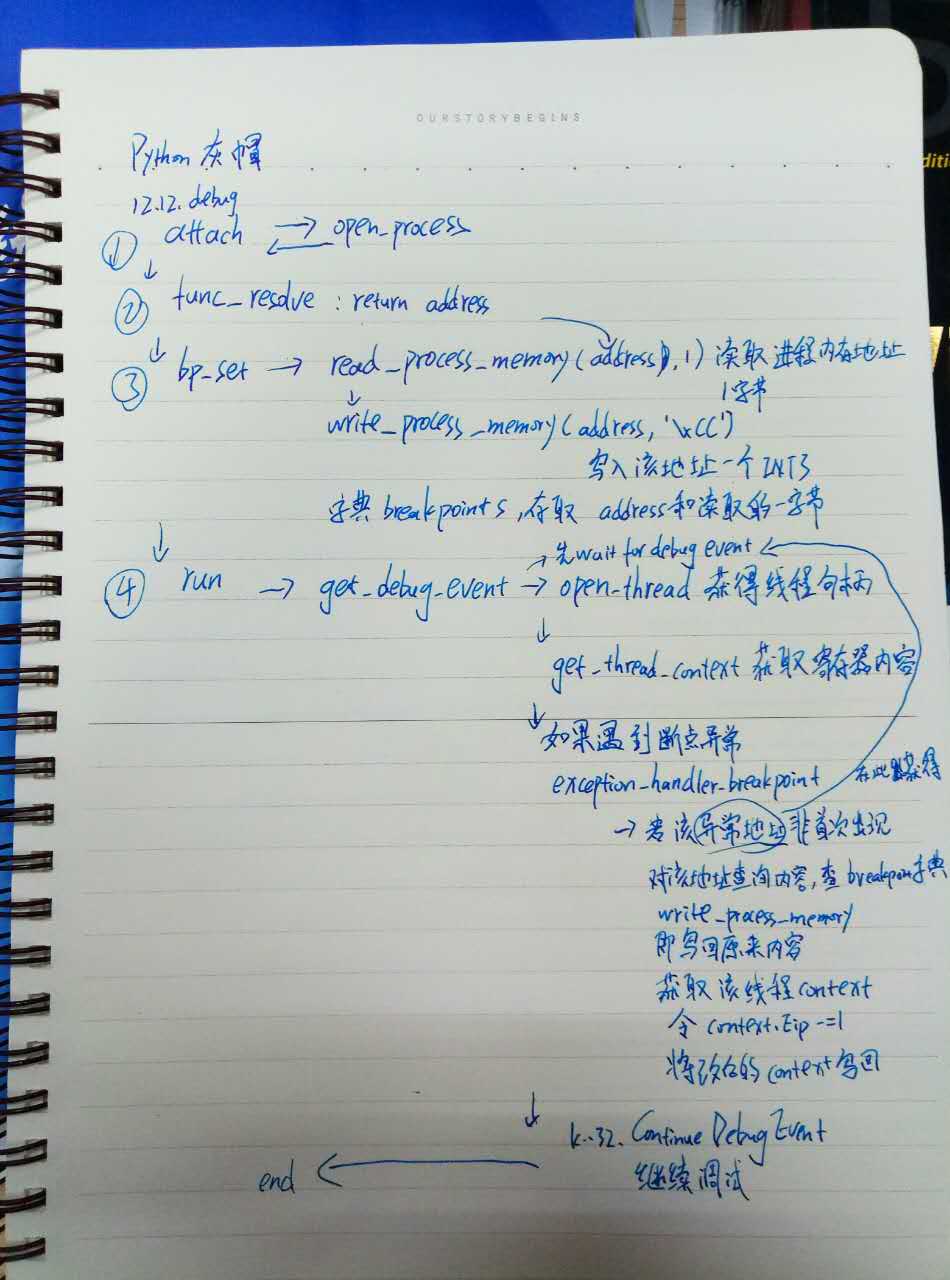 OURSTORYBEGINS
Python 灰帽
12.12. debug
① attach → open_process
↓
② func_resolve : return address
↓
③ bp_set → read_process_memory(address, 1) 读取进程内存地址
1字节
↓
write_process_memory(address, '\xCC')
写入该地址一个INT3
字典breakpoints,存取 address和读取的一字节
↓
→先wait for debug event
④ run → get_debug_event → open_thread 获得线程句柄
↓
get_thread_context 获取寄存器内容
↓ 如果遇到断点异常
exception_handler_breakpoint 在此获得
→ 若该异常地址非首次出现
对该地址查询内容,查breakpoin字典
write_process_memory
即写回原来内容
获取该线程context
令 context.Eip -=1
将改后的context写回
↓
k..32. Continue Debug Event
继续调试
end ←